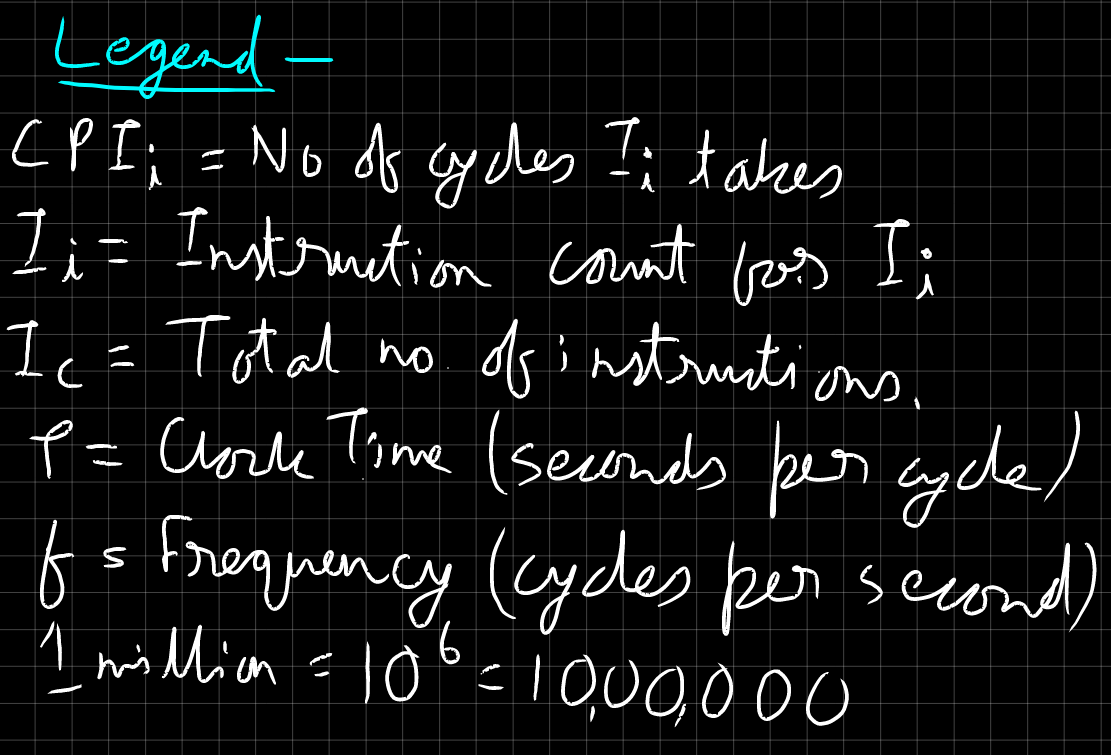 Legend –
CPIi = No of cycles Ii takes
Ii = Instruction count for Ii
Ic = Total no. of instructions.
τ = Clock Time (seconds per cycle)
f = Frequency (cycles per second)
1 million = 10⁶ = 10,00,000